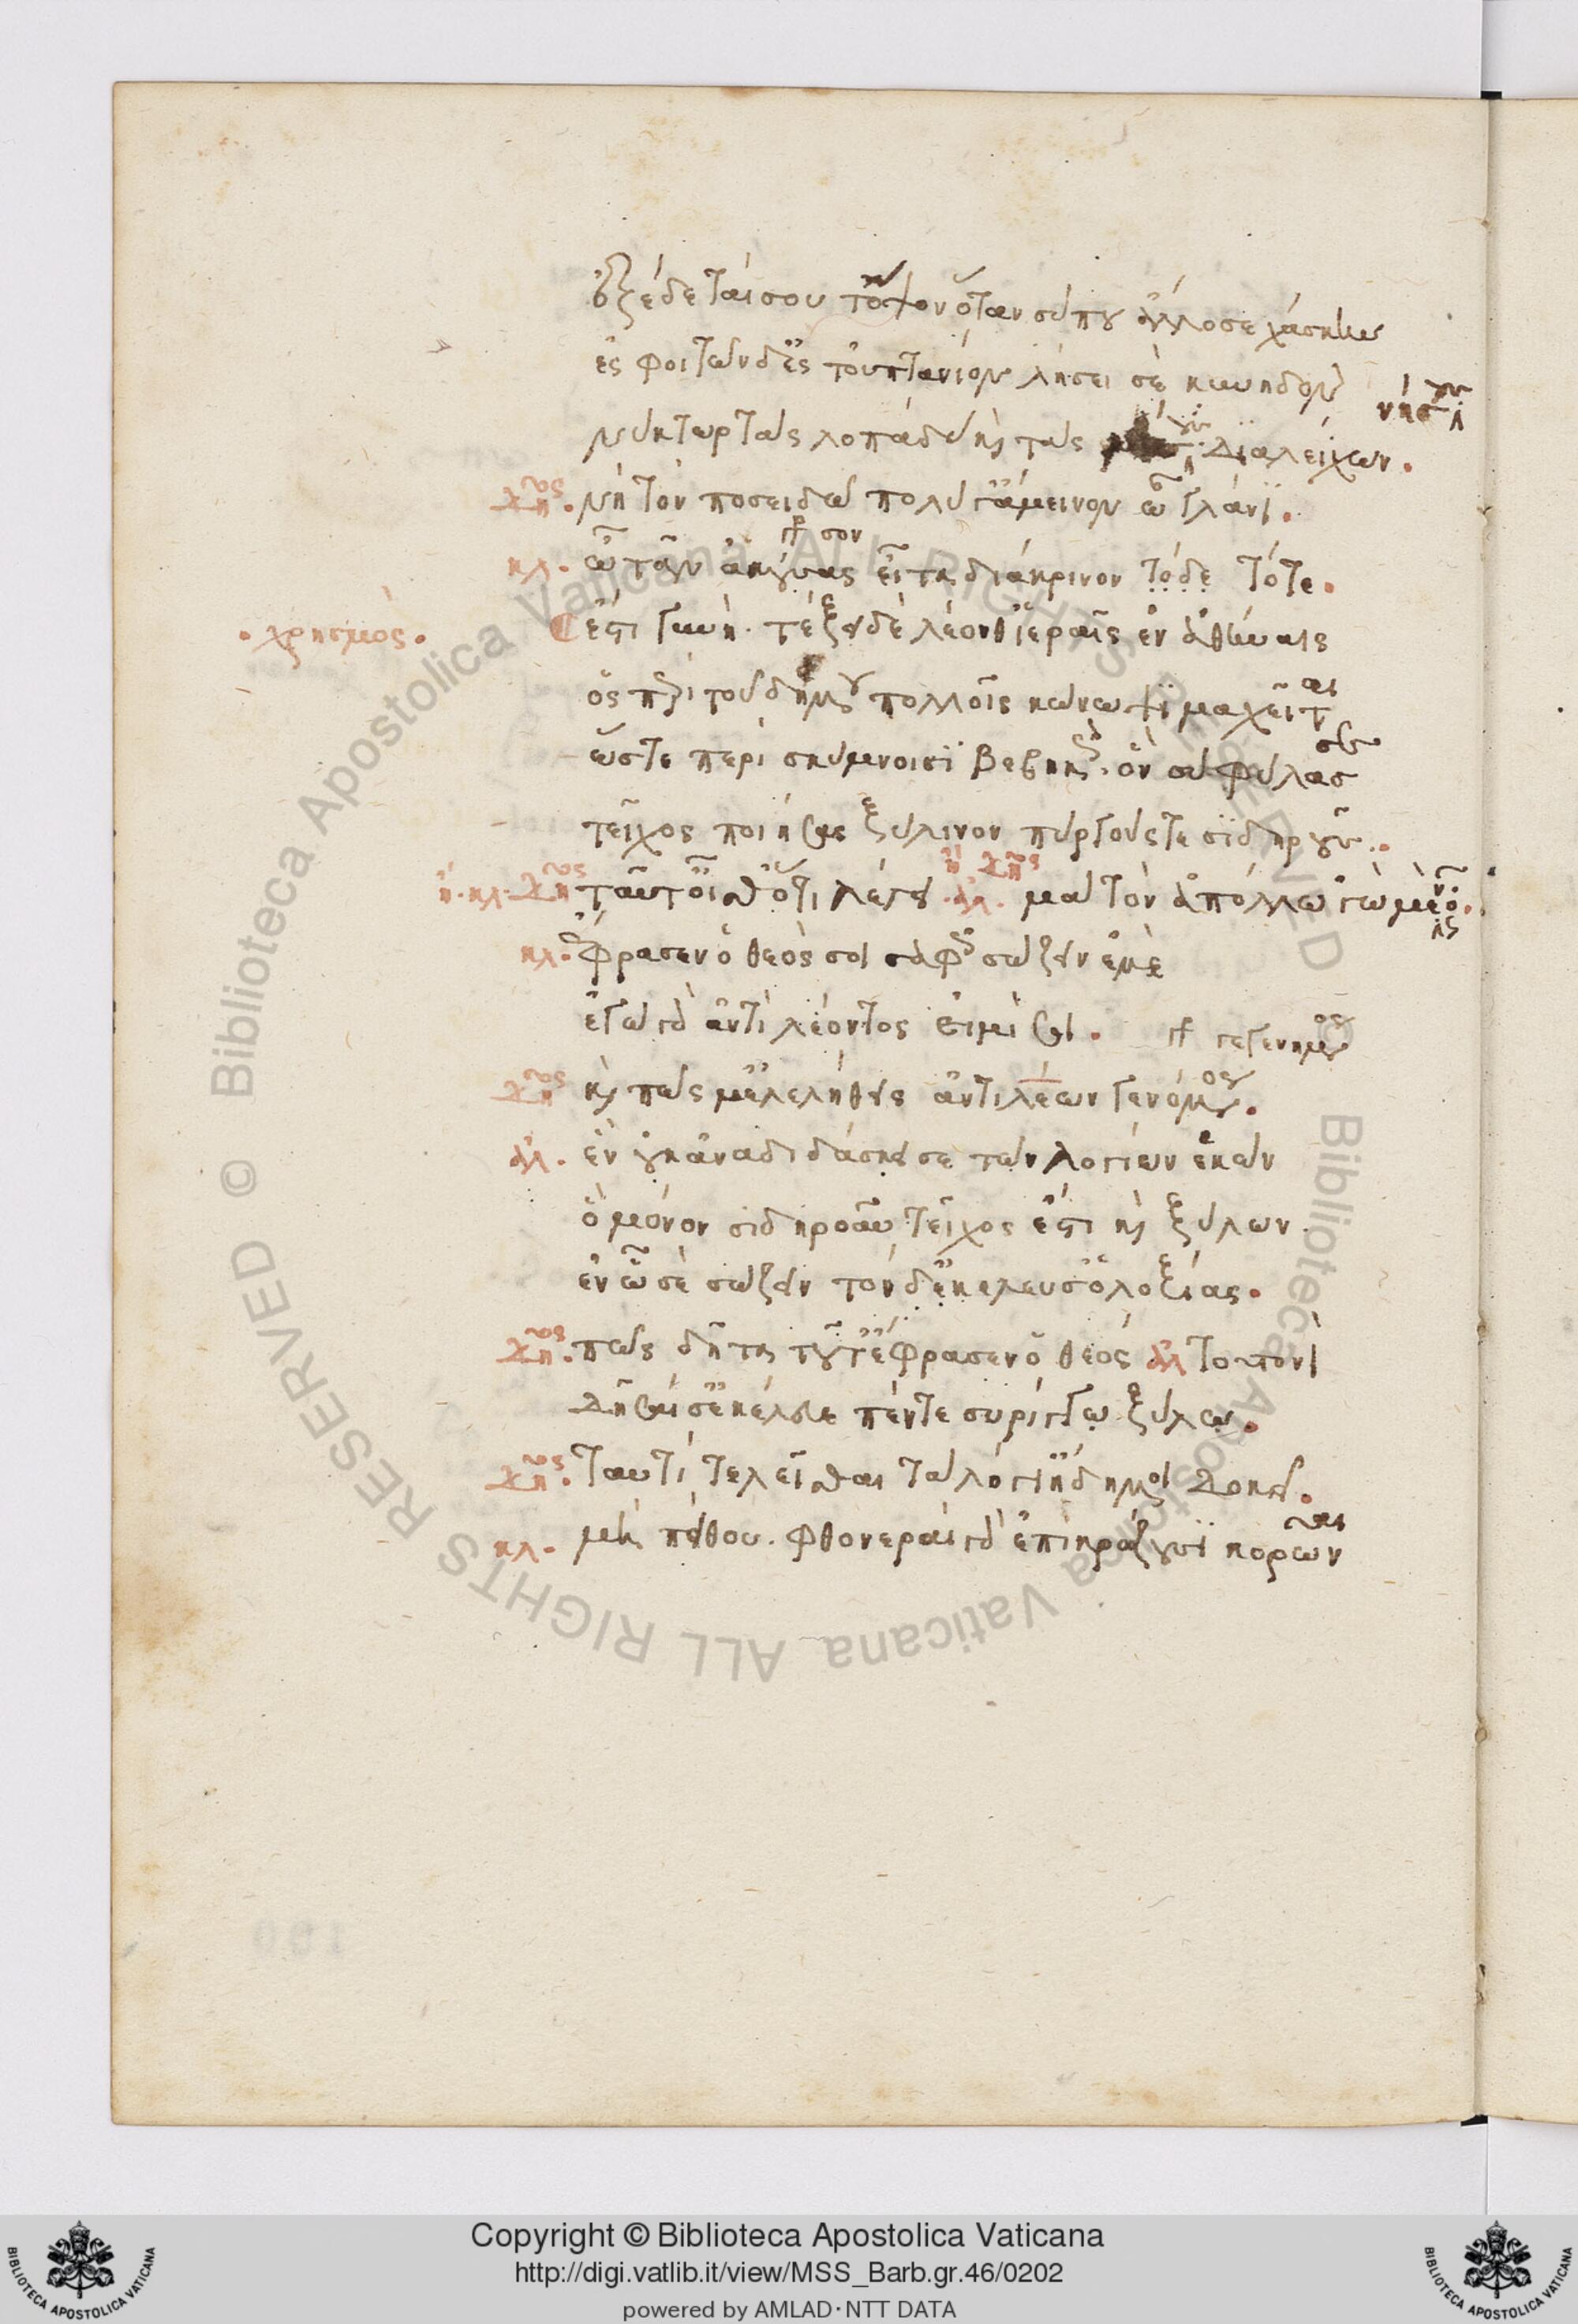 ἐξέδεταί σου τοὖψον ὅταν σύ που ἄλλοσε χάσκῃς
ἐς φοιτῶν δ' ἐς τοὐπτάνιον λήσει σε κυνηδὸν
νήσους
νύκτωρ τὰς λοπάδας καὶ τὰς νήσους διαλείχων.
δῆμος. νὴ τὸν ποσειδῶ πολύ γ' ἄμεινον ὦ γλάνι.
γρ σον
κλ. ὦ τᾶν ἄκουσας εἶτα διάκρινον τόδε τότε.
. χρησμός. ἔστι γυνὴ. τέξει δὲ λέονθ' ἱεραῖς ἐν ἀθήναις
ὃς περὶ τοῦ δήμου πολλοῖς κώνωψι μαχεῖται
ὥστε περὶ σκύμνοισι βεβηκώς. ὃν σὺ φύλασσε
τεῖχος ποιήσας ξύλινον πύργους τε σιδηροῦς.
ἢ δῆμος
ἢ. κλ. δῆμος ταῦτ' οἶσθ' ὅτι λέγει. ἀλ. μὰ τὸν ἀπόλλω 'γὼ μὲν οὔ.
κλ. ἔφραζεν ὁ θεός σοι σαφῶς σώζειν ἐμέ
ἐγὼ γὰρ ἀντὶ λέοντος εἰμί σοι. γρ γεγενημένος
δῆμος καὶ πῶς μ' ἐλελήθεις ἀντιλέων γενόμενος.
ἀλ. ἓν οὐκ ἀναδιδάσκει σε τῶν λογίων ἑκὼν
ὃ μόνον σιδηροῦν τεῖχος ἐστι καὶ ξύλων
ἐν ᾧ σε σώζειν τόνδ' ἐκέλευσ' ὁ λοξίας.
δῆμος. πῶς δῆτα τοῦτ' ἔφραζεν ὁ θεός ἀλ τουτονὶ
δῆσαί σ' ἐκέλευε πεντεσυρίγγῳ ξύλῳ.
δῆμος. ταυτὶ τελεῖσθαι τὰ λόγι' ἤδη μοι δοκεῖ.
κλ. μὴ πείθου. φθονεραὶ γὰρ ἐπικράζουσι κορῶναι
Copyright © Biblioteca Apostolica Vaticana
http://digi.vatlib.it/view/MSS_Barb.gr.46/0202
powered by AMLAD·NTT DATA